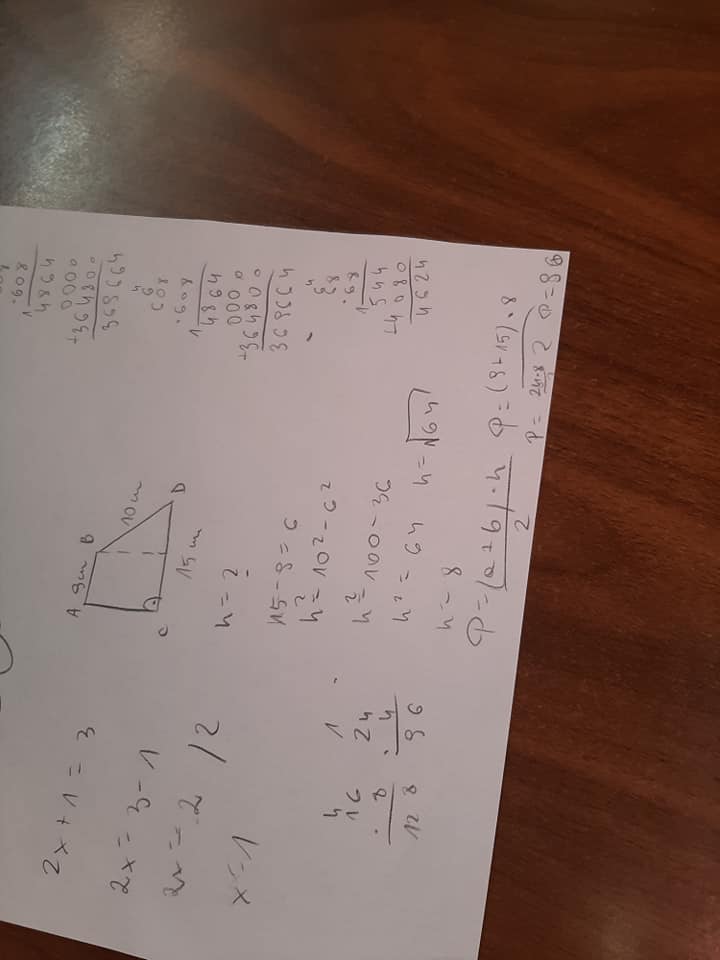 2x + 1 = 3
2x = 3 - 1
2x = 2 /2
x = 1
4
16
· 8
128
1
24
· 4
96
A 9cm B
10cm
C 15cm D
h = ?
15 - 9 = 6
h² = 10² - 6²
h² = 100 - 36
h² = 64 h = √64
h = 8
P = (a+b)·h
2
P = (9+15)·8
2
P = 24·8
2
P = 96
·608
1
4864
0000
+364800
369664
608
·608
1
4864
0000
+364800
369664
68
·68
1
544
+4080
4624